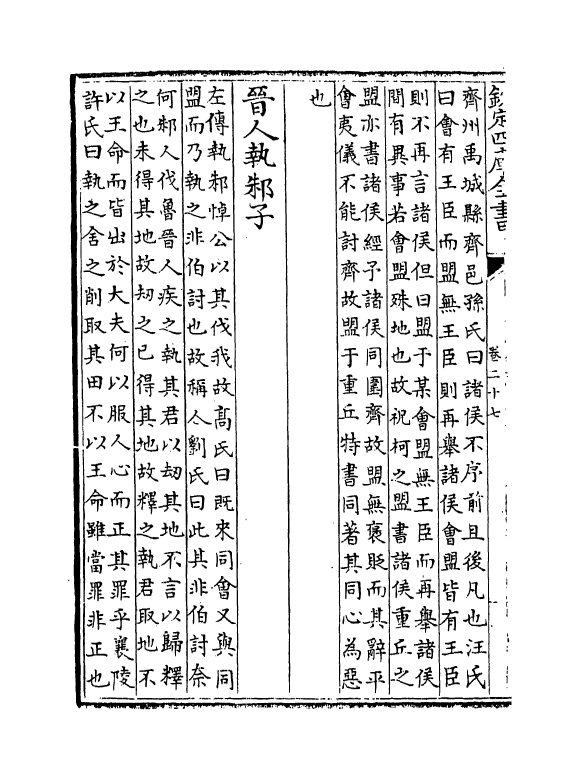 欽定四庫全書
卷二十七
齊州禹城縣齊邑孫氏曰諸侯不序前且後凡也汪氏
曰會有王臣而盟無王臣則再舉諸侯會盟皆有王臣
則不再言諸侯但曰盟于某會盟無王臣而再舉諸侯
間有異事若會盟殊地也故祝柯之盟書諸侯重丘之
盟亦書諸侯經予諸侯同圍齊故盟無褒貶而其辭平
會夷儀不能討齊故盟于重丘特書同著其同心為惡
也
晉人執邾子
左傳執邾悼公以其伐我故高氏曰既來同會又與同
盟而乃執之非伯討也故稱人劉氏曰此其非伯討奈
何邾人伐魯晉人疾之執其君以刼其地不言以歸釋
之也未得其地故刼之已得其地故釋之執君取地不
以王命而皆出於大夫何以服人心而正其罪乎襄陵
許氏曰執之舍之削取其田不以王命雖當罪非正也